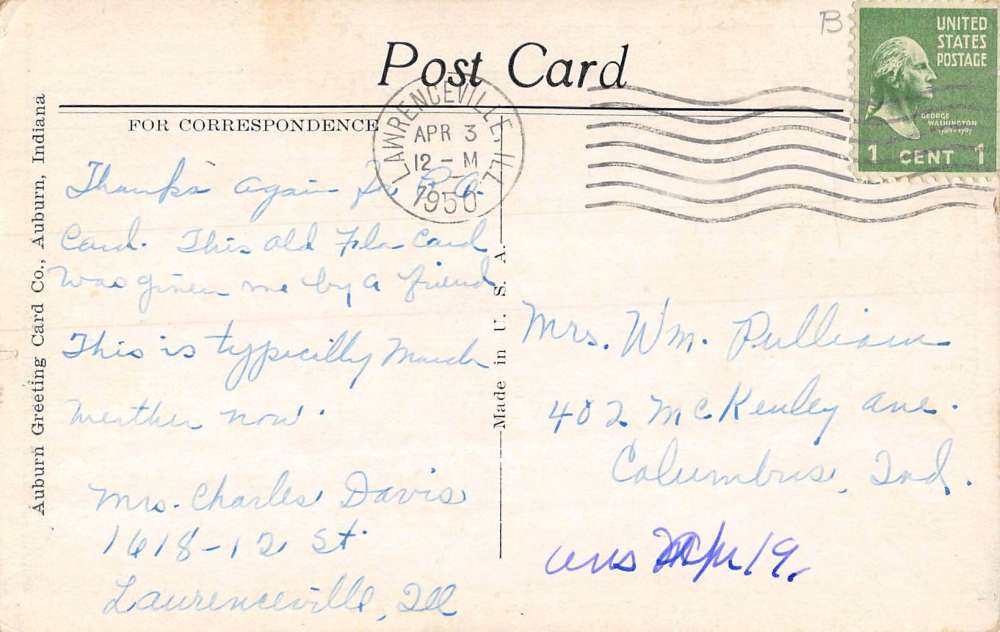 B
UNITED
STATES
POSTAGE
GEORGE
WASHINGTON
1 CENT 1
Post Card
LAWRENCEVILLE, ILL.
APR 3
12 - M
1950
FOR CORRESPONDENCE
Thanks again for P.A.
Card. This old Fla Card
was given me by a friend
This is typicilly March
Weather now.
Mrs. Charles Davis
1618-12 St.
Lawrenceville, Ill
Mrs. Wm. Pulliam
402 McKenley Ave.
Columbus, Ind.
ans Apr 19.
Made in U. S. A.
Auburn Greeting Card Co., Auburn, Indiana